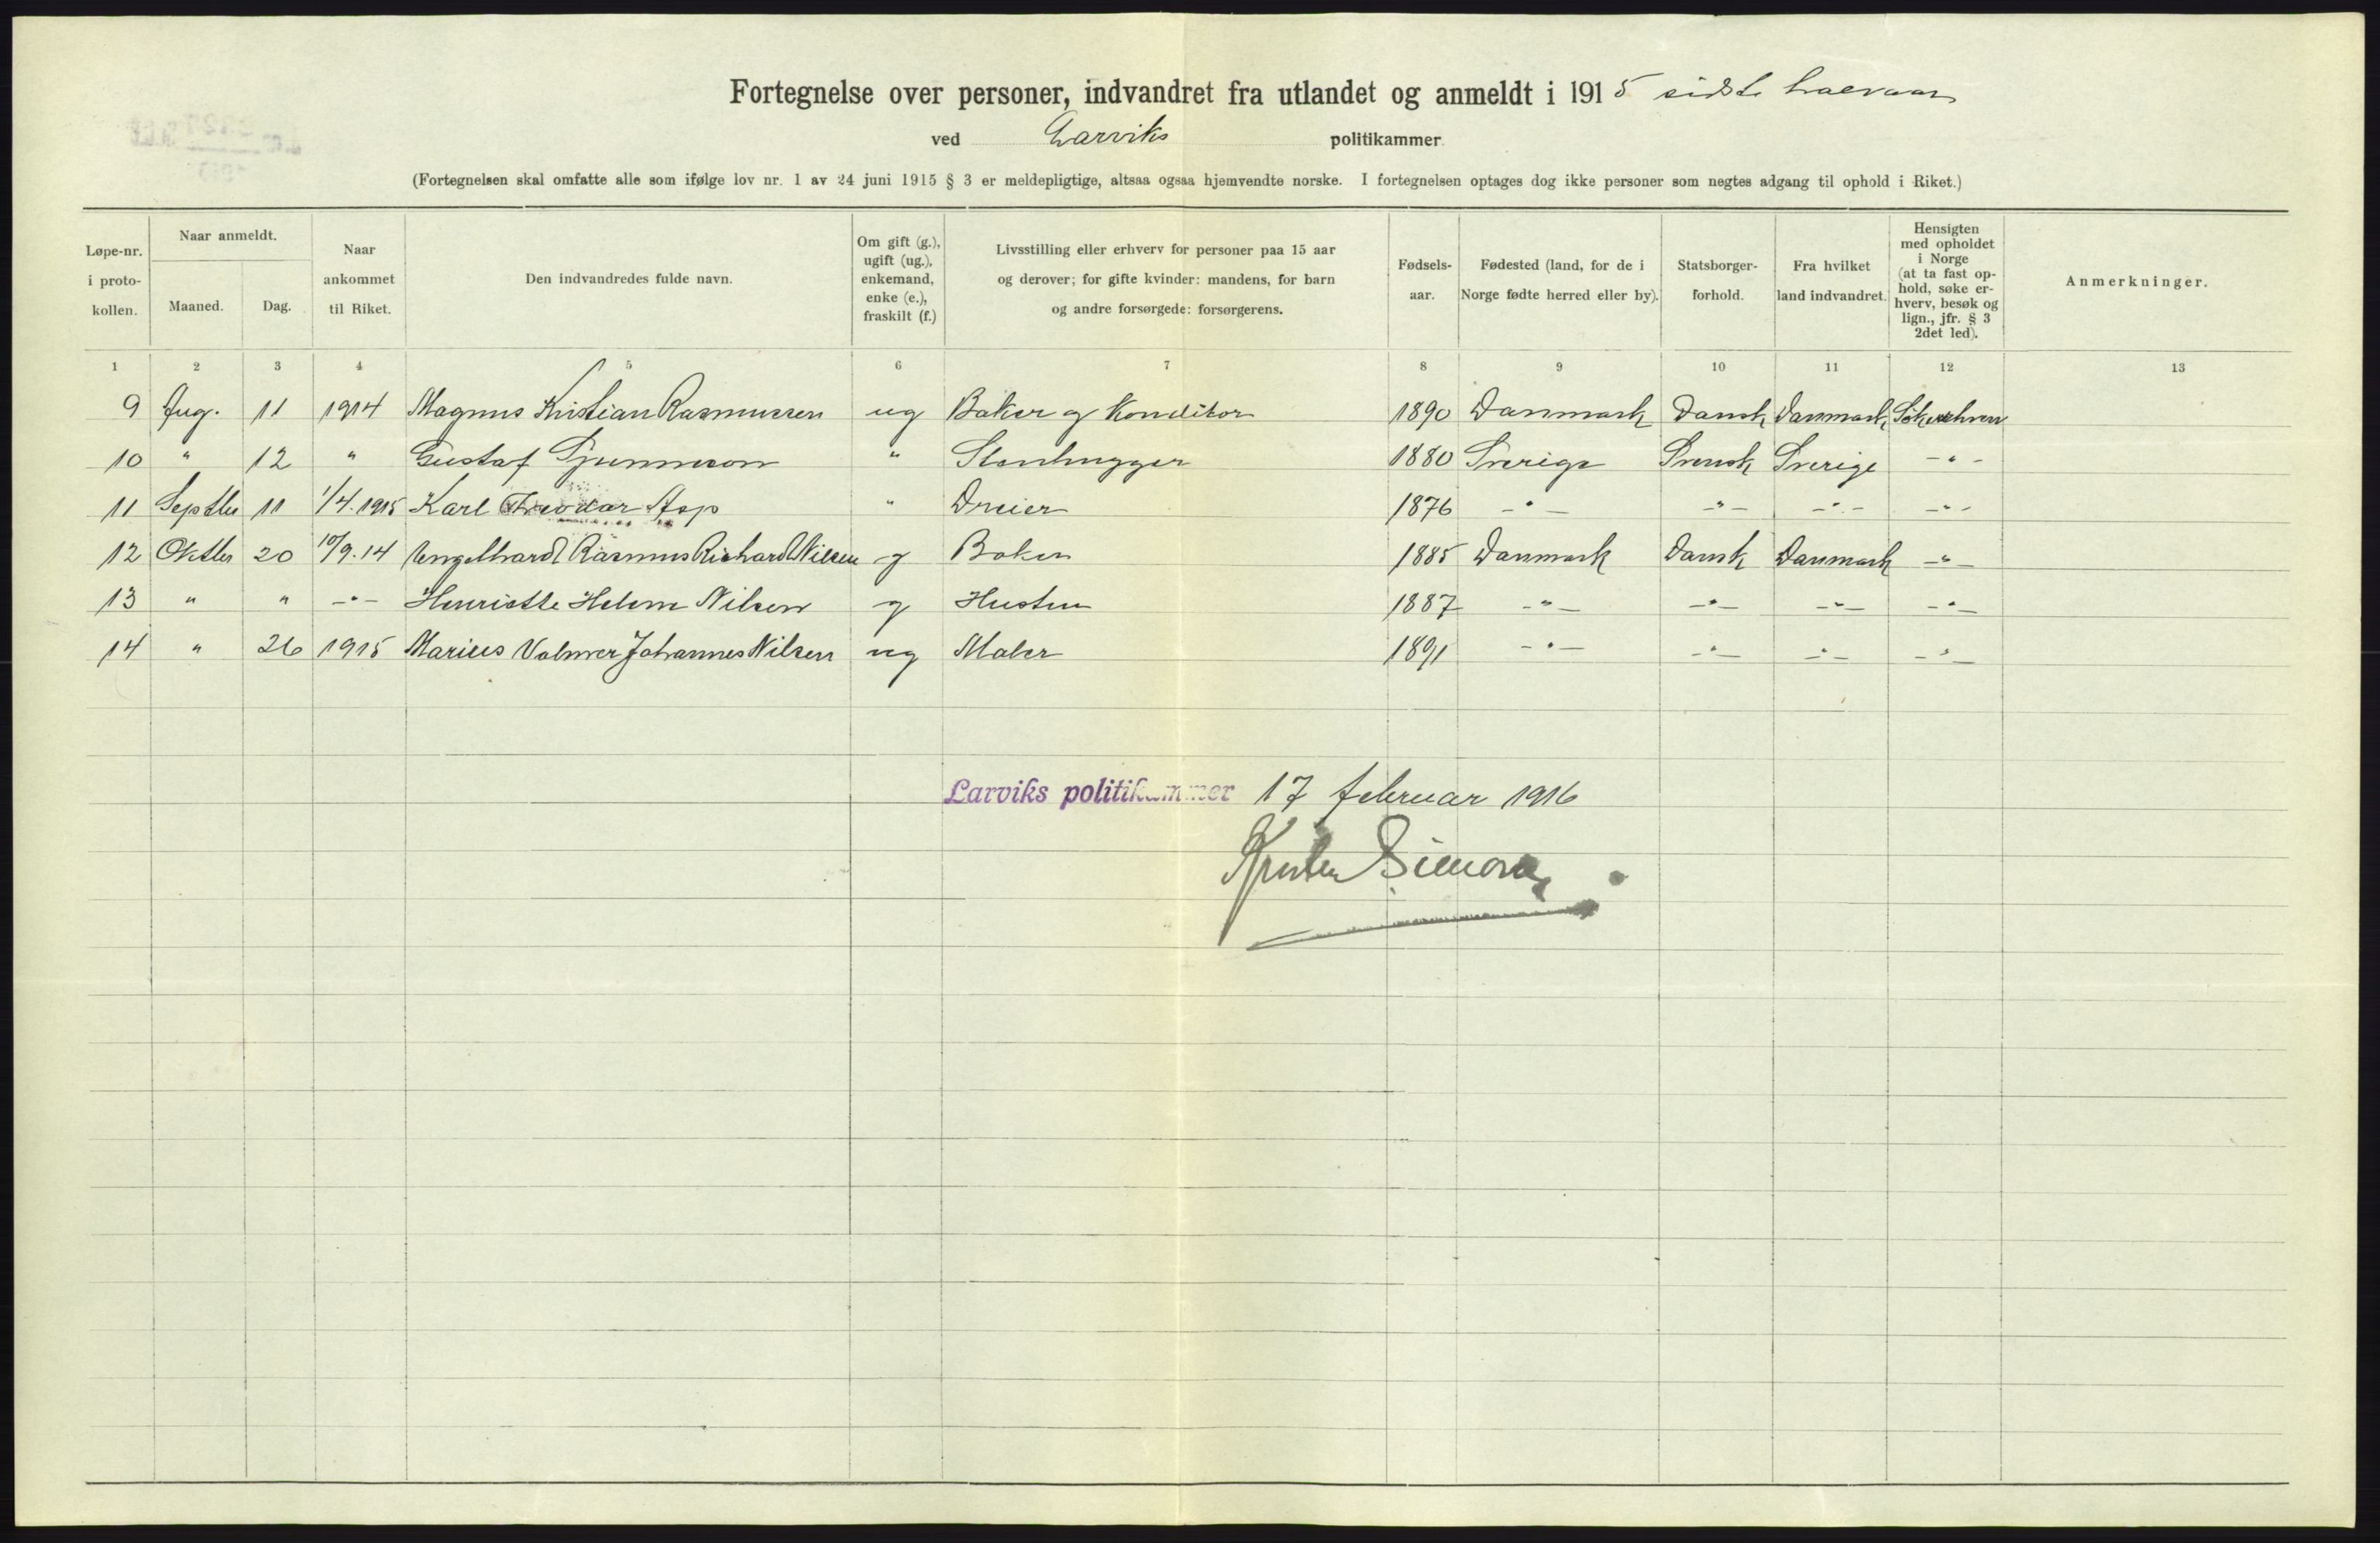 Fortegnelse over personer, indvandret fra utlandet og anmeldt i 1915 sidste halvaar
ved Larviks politikammer.
(Fortegnelsen skal omfatte alle som ifølge lov nr. 1 av 24 juni 1915 § 3 er meldepligtige, altsaa ogsaa hjemvendte norske. I fortegnelsen optages dog ikke personer som negtes adgang til ophold i Riket.)
Løpe-nr. i proto-kollen. Naar anmeldt. Maaned. Dag. Naar ankommet til Riket. Den indvandredes fulde navn. Om gift (g.), ugift (ug.), enkemand, enke (e.), fraskilt (f.) Livsstilling eller erhverv for personer paa 15 aar og derover; for gifte kvinder: mandens, for barn og andre forsørgede: forsørgerens. Fødsels-aar. Fødested (land, for de i Norge fødte herred eller by). Statsborger-forhold. Fra hvilket land indvandret. Hensigten med opholdet i Norge (at ta fast op-hold, søke er-hverv, besøk og lign., jfr. § 3 2det led). Anmerkninger.
1 2 3 4 5 6 7 8 9 10 11 12 13
9 Aug. 11 1914 Magnus Kristian Rasmussen ug Baker og Konditor 1890 Danmark Dansk Danmark Søke erhverv
10 " 12 " Gustaf " Stenhugger 1880 Sverige Svensk Sverige - " -
11 Septbr 11 1/4.1915 Karl Asp " Dreier 1876 - " - - " - - " - - " -
12 Oktbr 20 10/9.14 Engelhardt Rasmus Richard Nilsen g Baker 1885 Danmark Dansk Danmark - " -
13 " " - " - Henriette Helene Nilsen g Hustru 1887 - " - - " - - " - - " -
14 " 26 1915 Marius Valmer Johannes Nilsen ug Maler 1891 - " - - " - - " - - " -
Larviks politikammer 17 februar 1916